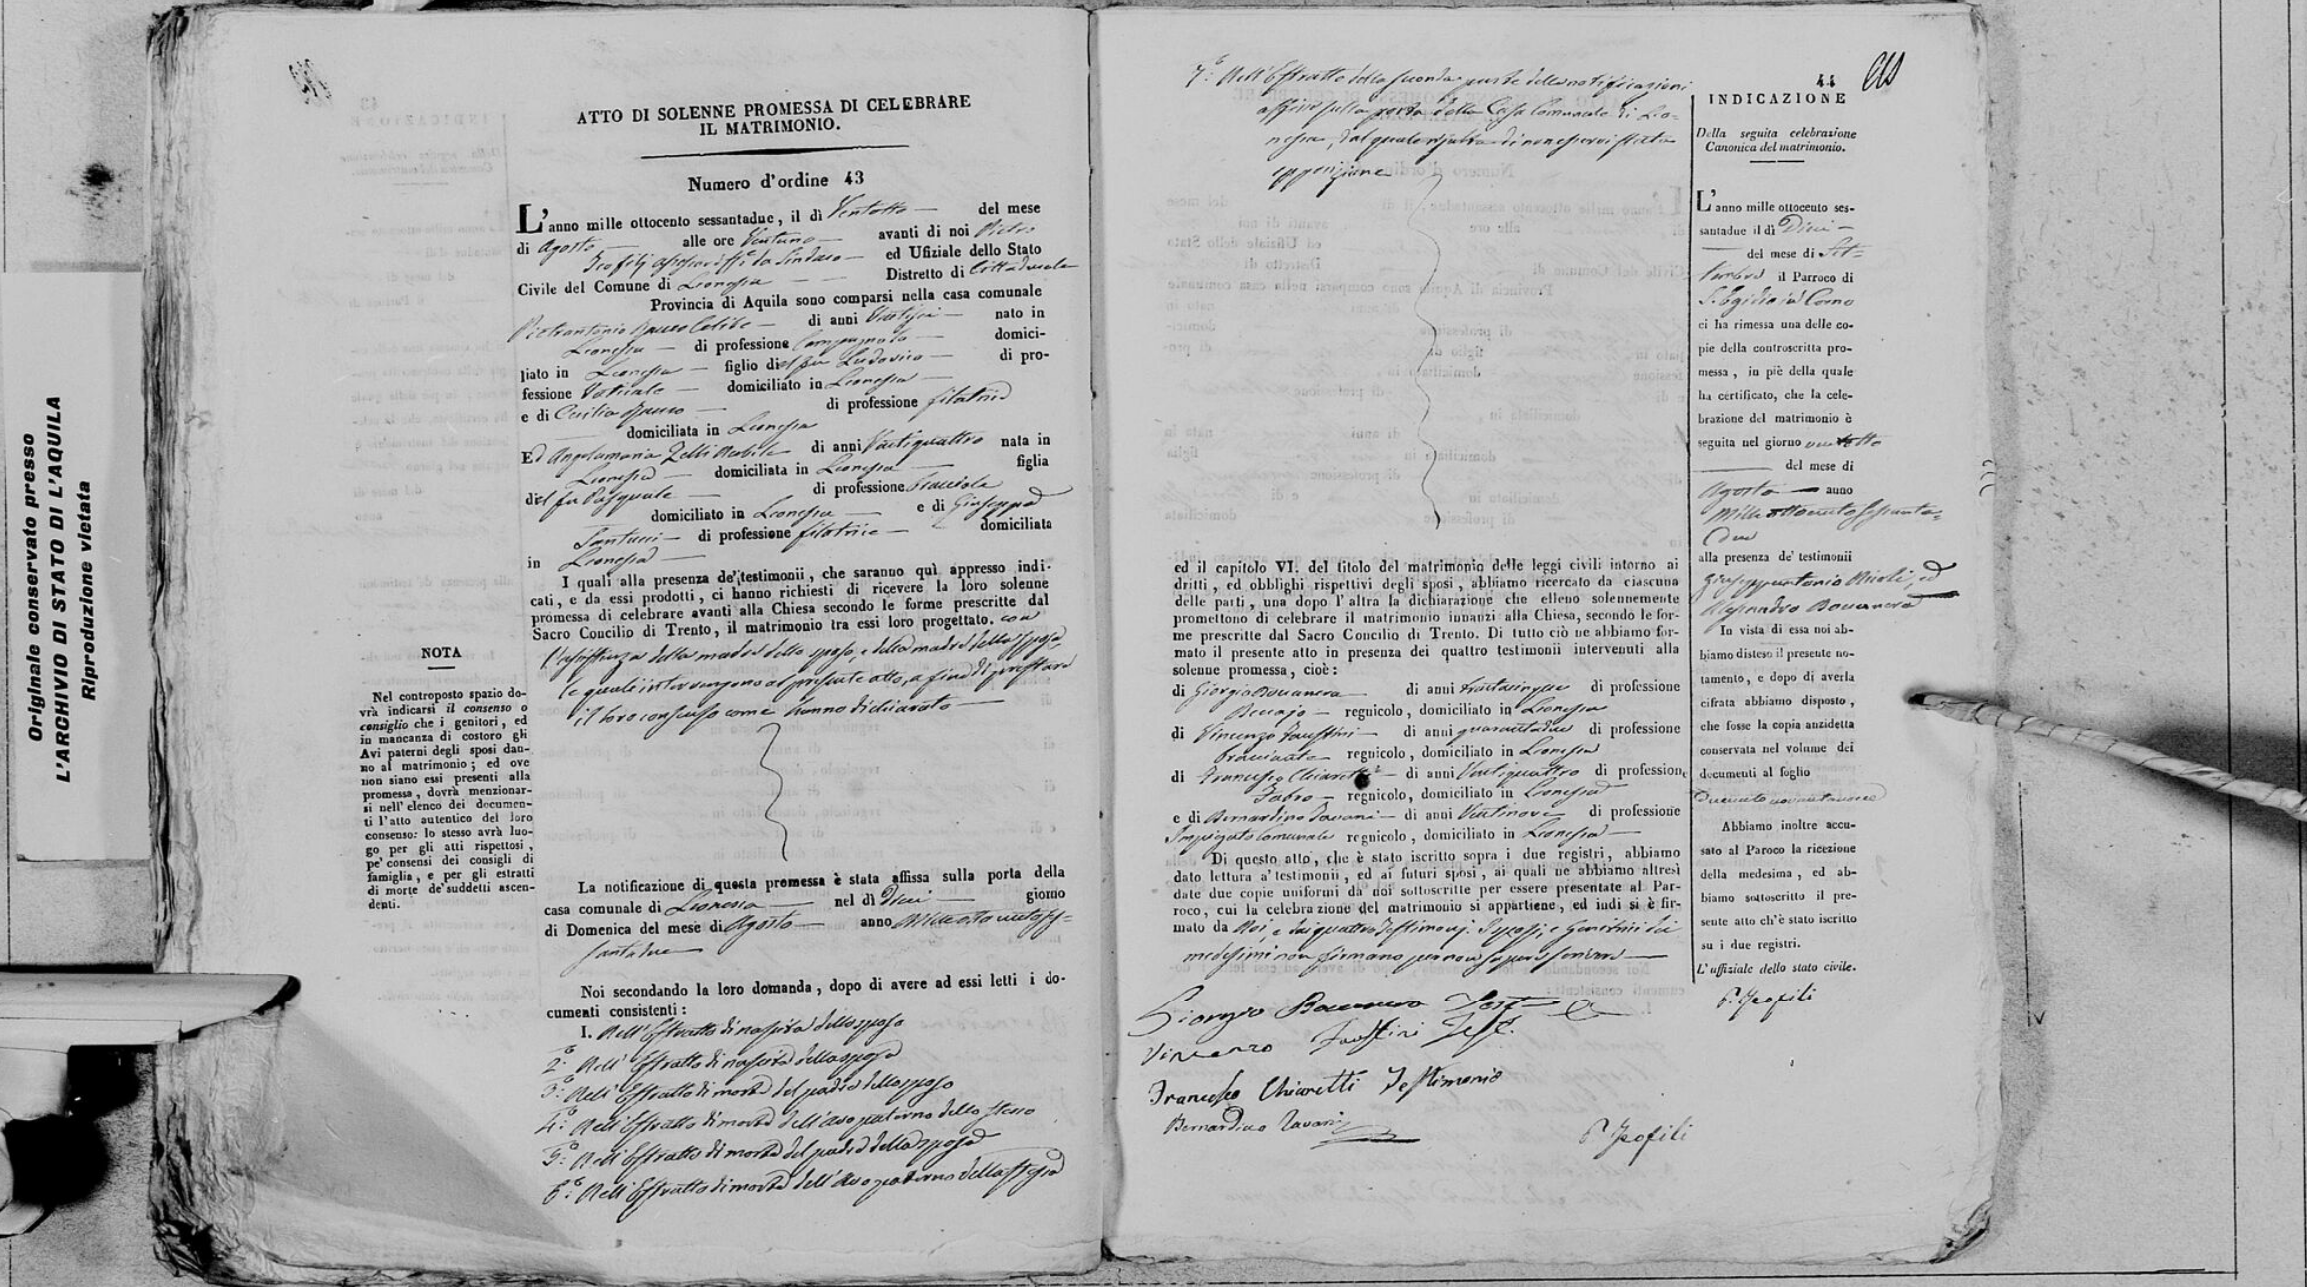 Originale conservato presso
L'ARCHIVIO DI STATO DI L'AQUILA
Riproduzione vietata
ATTO DI SOLENNE PROMESSA DI CELEBRARE
IL MATRIMONIO.
Numero d'ordine 43
L'anno mille ottocento sessantadue, il dì Ventotto del mese
di Agosto alle ore Ventuno avanti di noi Pietro
Teofilj da Sindaco ed Ufiziale dello Stato
Civile del Comune di Leonessa Distretto di Cittaducale
Provincia di Aquila sono comparsi nella casa comunale
Pietrantonio Rauco Celibe di anni Ventisei nato in
Leonessa di professione Campagnolo domici-
liato in Leonessa figlio del fu Ludovico di pro-
fessione Vaticale domiciliato in Leonessa
e di Cecilia di professione filatrice
domiciliata in Leonessa
Ed Angelamaria Zelli Nubile di anni Ventiquattro nata in
Leonessa domiciliata in Leonessa figlia
del fu Pasquale di professione
domiciliato in Leonessa e di Giuseppa
Santucci di professione filatrice domiciliata
in Leonessa
I quali alla presenza de' testimonii, che saranno quì appresso indi-
cati, e da essi prodotti, ci hanno richiesti di ricevere la loro solenne
promessa di celebrare avanti alla Chiesa secondo le forme prescritte dal
Sacro Concilio di Trento, il matrimonio tra essi loro progettato. con
l'assistenza della madre dello sposo, e della madre della sposa,
le quali intervengono al presente atto, a fine di prestare
il loro consenso come hanno dichiarato
NOTA
Nel controposto spazio do-
vrà indicarsi il consenso o
consiglio che i genitori, ed
in mancanza di costoro gli
Avi paterni degli sposi dan-
no al matrimonio; ed ove
non siano essi presenti alla
promessa, dovrà menzionar-
si nell'elenco dei documen-
ti l'atto autentico del loro
consenso: lo stesso avrà luo-
go per gli atti rispettosi,
pe' consensi dei consigli di
famiglia, e per gli estratti
di morte de' suddetti ascen-
denti.
La notificazione di questa promessa è stata affissa sulla porta della
casa comunale di Leonessa nel dì Dieci giorno
di Domenica del mese di Agosto anno Milleottocentoses-
santadue
Noi secondando la loro domanda, dopo di avere ad essi letti i do-
cumenti consistenti:
I. Nell'Estratto di nascita dello sposo
2.° Nell'Estratto di nascita della sposa
3.° Nell'Estratto di morte del padre dello sposo
4.° Nell'Estratto di morte dell'Avo paterno dello stesso
5.° Nell'Estratto di morte del padre della sposa
6.° Nell'Estratto di morte dell'Avo paterno della stessa
7.° Nell'Estratto della seconda parte delle notificazioni
affisse sulla porta della Casa Comunale di Leo-
nessa, dal quale risulta di non esservi stata
opposizione
ed il capitolo VI. del titolo del matrimonio delle leggi civili intorno ai
dritti, ed obblighi rispettivi degli sposi, abbiamo ricercato da ciascuna
delle parti, una dopo l'altra la dichiarazione che elleno solennemente
promettono di celebrare il matrimonio innanzi alla Chiesa, secondo le for-
me prescritte dal Sacro Concilio di Trento. Di tutto ciò ne abbiamo for-
mato il presente atto in presenza dei quattro testimonii intervenuti alla
solenne promessa, cioè:
di Giorgio Boccanera di anni trentacinque di professione
Beccajo regnicolo, domiciliato in Leonessa
di Vincenzo Faustini di anni quarantadue di professione
bracciante regnicolo, domiciliato in Leonessa
di Francesco Chiaretti di anni Ventiquattro di professione
Fabro regnicolo, domiciliato in Leonessa
e di Bernardino Tavani di anni Ventinove di professione
Impiegato Comunale regnicolo, domiciliato in Leonessa
Di questo atto, che è stato iscritto sopra i due registri, abbiamo
dato lettura a' testimonii, ed ai futuri sposi, ai quali ne abbiamo altresì
date due copie uniformi da noi sottoscritte per essere presentate al Par-
roco, cui la celebrazione del matrimonio si appartiene, ed indi si è fir-
mato da Noi, e dai quattro Testimonj. I sposi, e Genitrici dei
medesimi non firmano per non sapere scrivere
Giorgio Boccanera Test
Vincenzo Faustini Test.
Francesco Chiaretti Testimonio
Bernardino Tavani
P. Teofili
44
INDICAZIONE
Della seguita celebrazione
Canonica del matrimonio.
L'anno mille ottocento ses-
santadue il dì Dieci
del mese di Set-
tembre il Parroco di
S. Egidio in Corno
ci ha rimessa una delle co-
pie della controscritta pro-
messa, in piè della quale
ha certificato, che la cele-
brazione del matrimonio è
seguita nel giorno ventotto
del mese di
Agosto anno
Milleottocentosessanta-
due
alla presenza de' testimonii
Giuseppantonio Nicoli, ed
Alessandro Boccanera
In vista di essa noi ab-
biamo disteso il presente no-
tamento, e dopo di averla
cifrata abbiamo disposto,
che fosse la copia anzidetta
conservata nel volume dei
documenti al foglio
Abbiamo inoltre accu-
sato al Paroco la ricezione
della medesima, ed ab-
biamo sottoscritto il pre-
sente atto ch'è stato iscritto
su i due registri.
L'uffiziale dello stato civile.
P. Teofili